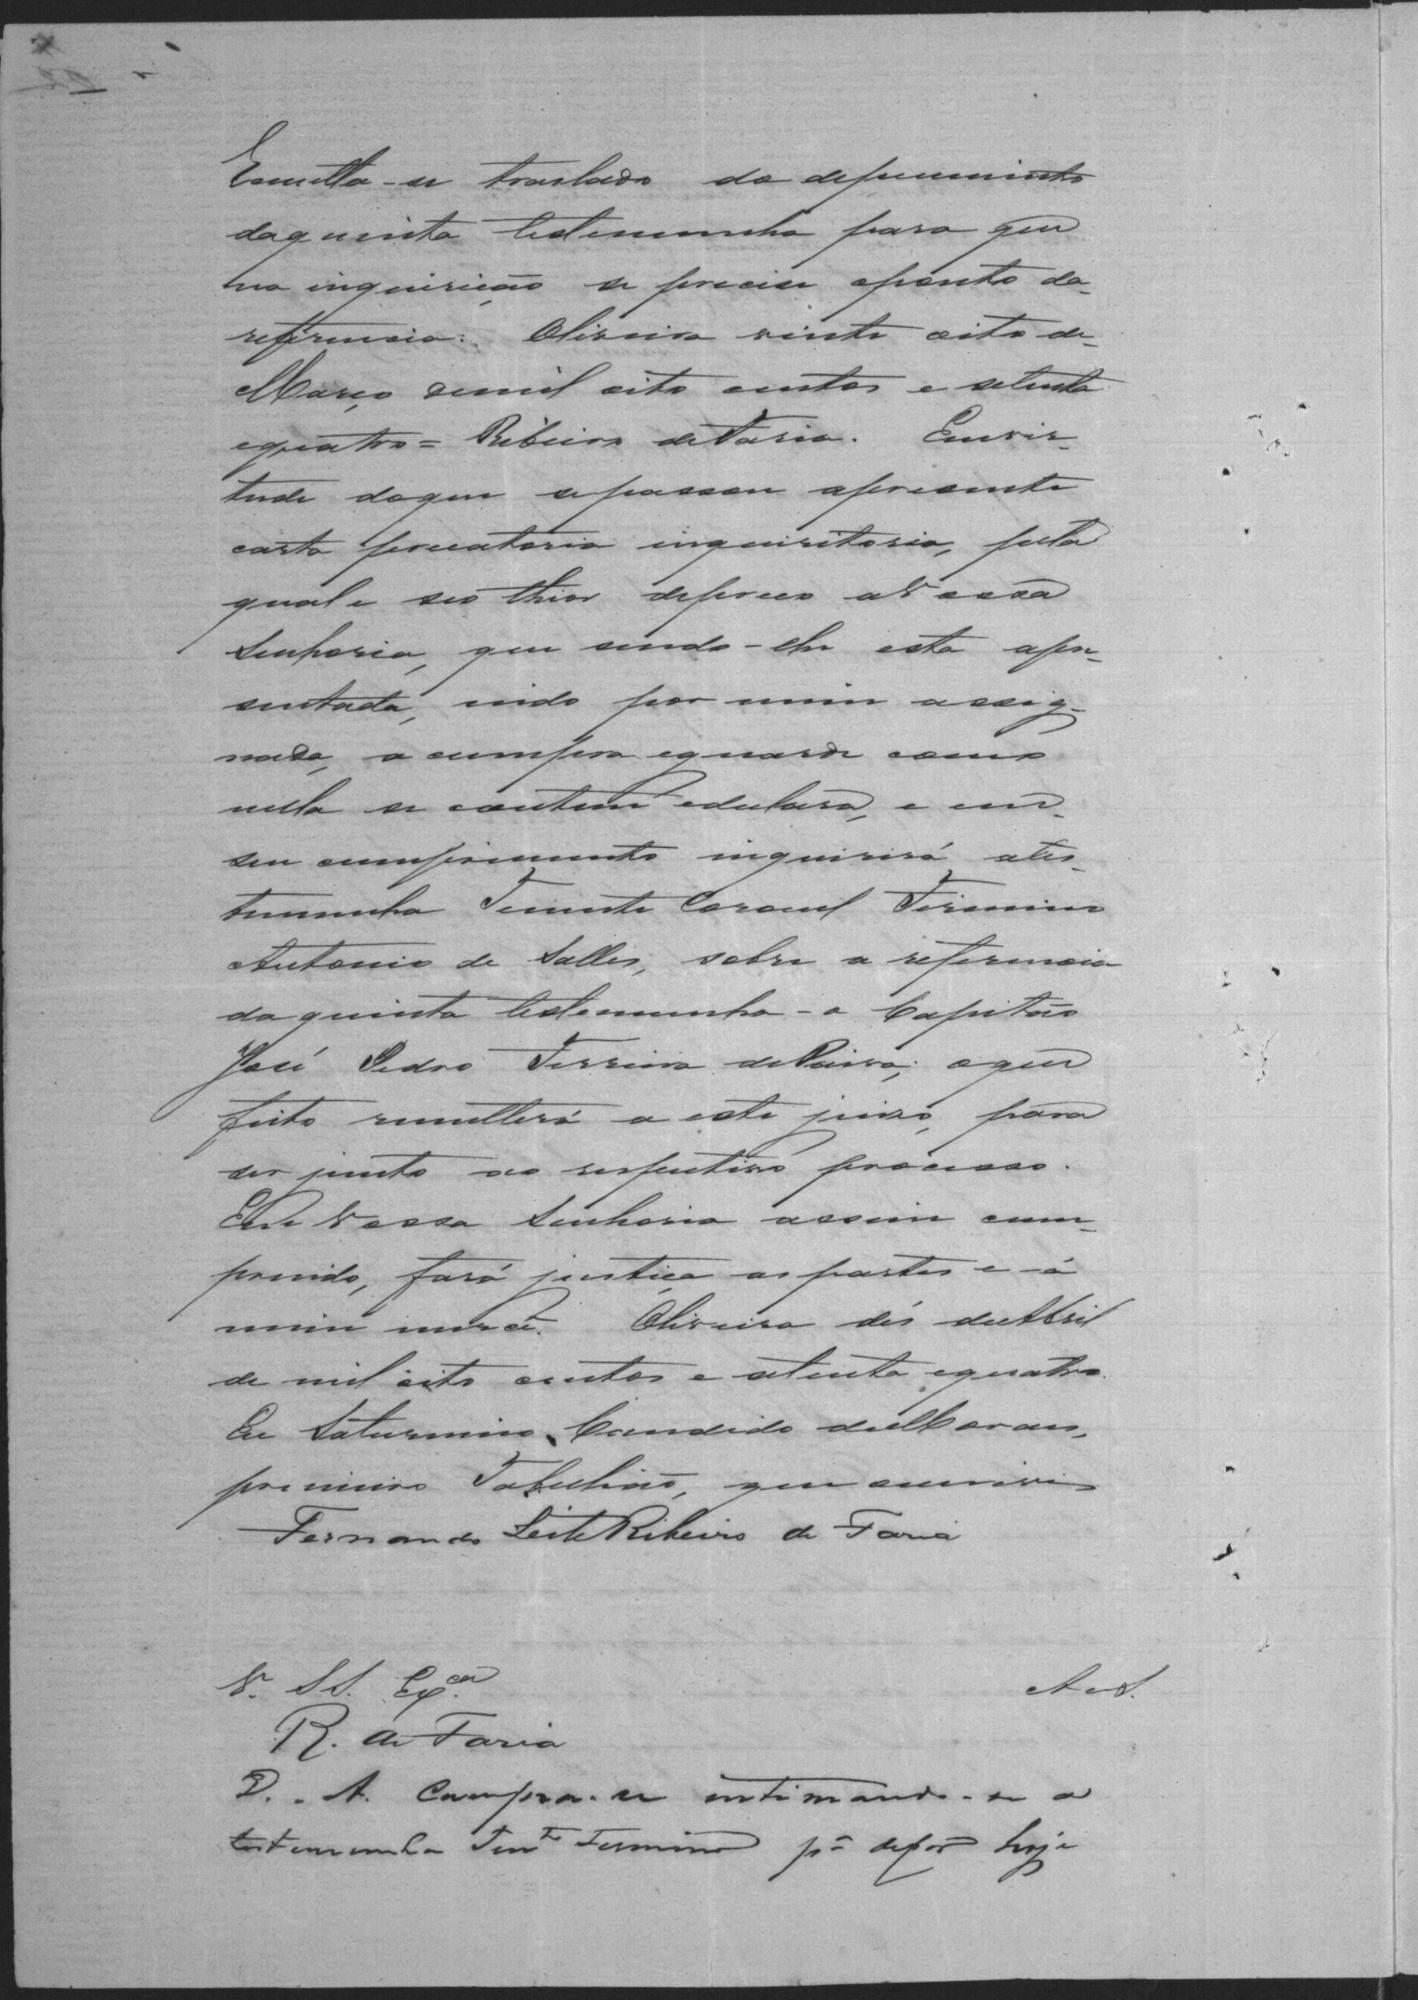 Remetta-se traslado do depuimento
daquinta testemunha para que
na inquirição se precise oponto da
referencia. Oliveira vinte oito de
Março demil oito centos e setenta
equatro = Ribeiro deFaria. Emvir-
tude doque sepassou apresente
carta precatoria inquiritoria, pela
qual e seo theor depreco aVossa
Senhoria, que sendo-lhe esta apre-
sentada, indo por mim assig-
nada, a cumpra eguarde como
nella se contem edeclara, e em
seu cumprimento inquirirá ates-
temunha Tenente Coronel Firmino
Antonio de Salles, sobre a referencia
da quinta testemunha - o Capitão
José Pedro Ferreira dePaiva; oque
feito remetterá a este juizo, para
ser junto ao respectivo processo.
Em Vossa Senhoria assim cum-
prindo, fará justiça as partes e á
mim mercê. Oliveira dés deAbril
de mil oito centos e setenta equatro.
Eu Saturnino Candido deMoraes,
primeiro Tabelião, que escrevi
Fernando Leite Ribeiro de Faria
V. S S. Ex.
R. de Faria
D. A. Cumpra-se intimando-se a
testemunha Tente Firmino pa depôr hoje